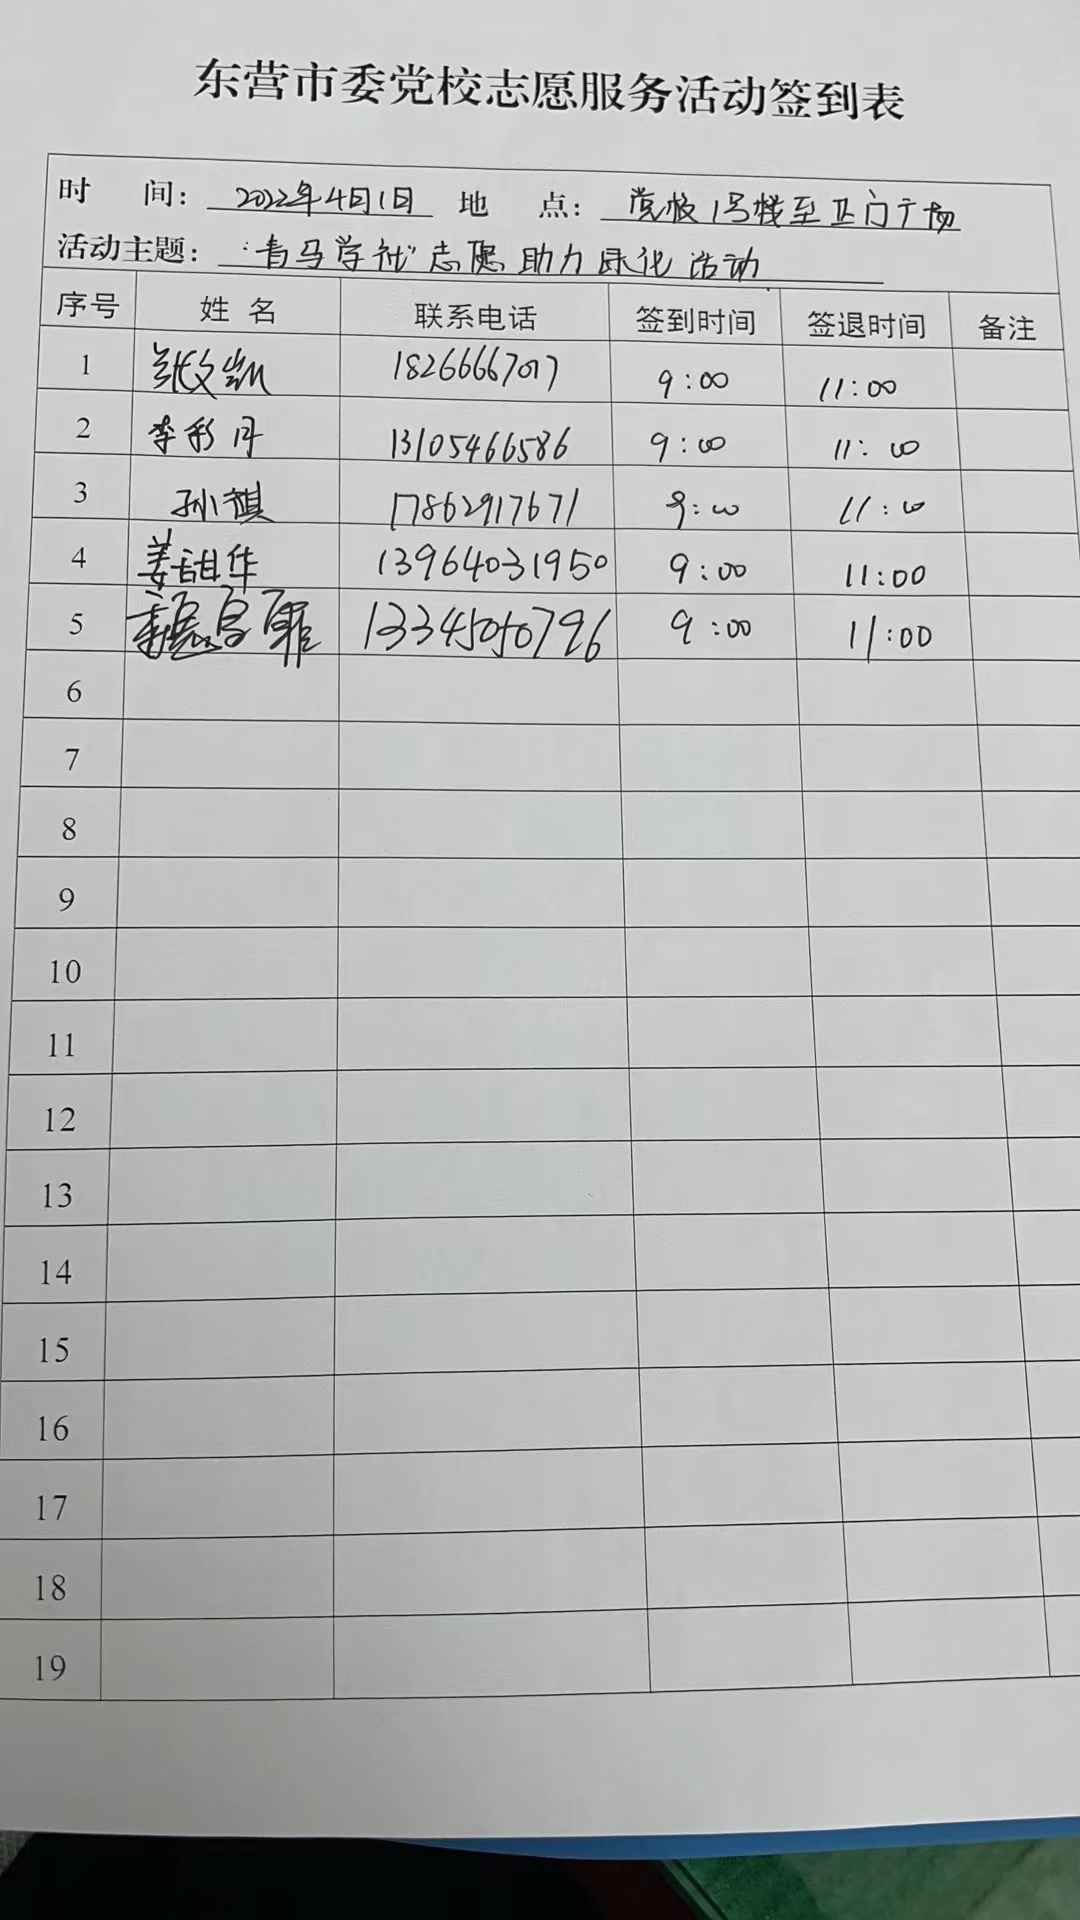 东营市委党校志愿服务活动签到表
时 间: 2022年4月1日 地 点: 党校1号楼至正门广场
活动主题: "青马学社"志愿助力绿化活动
序号 姓名 联系电话 签到时间 签退时间 备注
1 张文凯 18266667017 9:00 11:00
2 李彩丹 13105466586 9:00 11:00
3 孙祺 17862917671 9:00 11:00
4 姜甜华 13964031950 9:00 11:00
5 13345050796 9:00 11:00
6
7
8
9
10
11
12
13
14
15
16
17
18
19